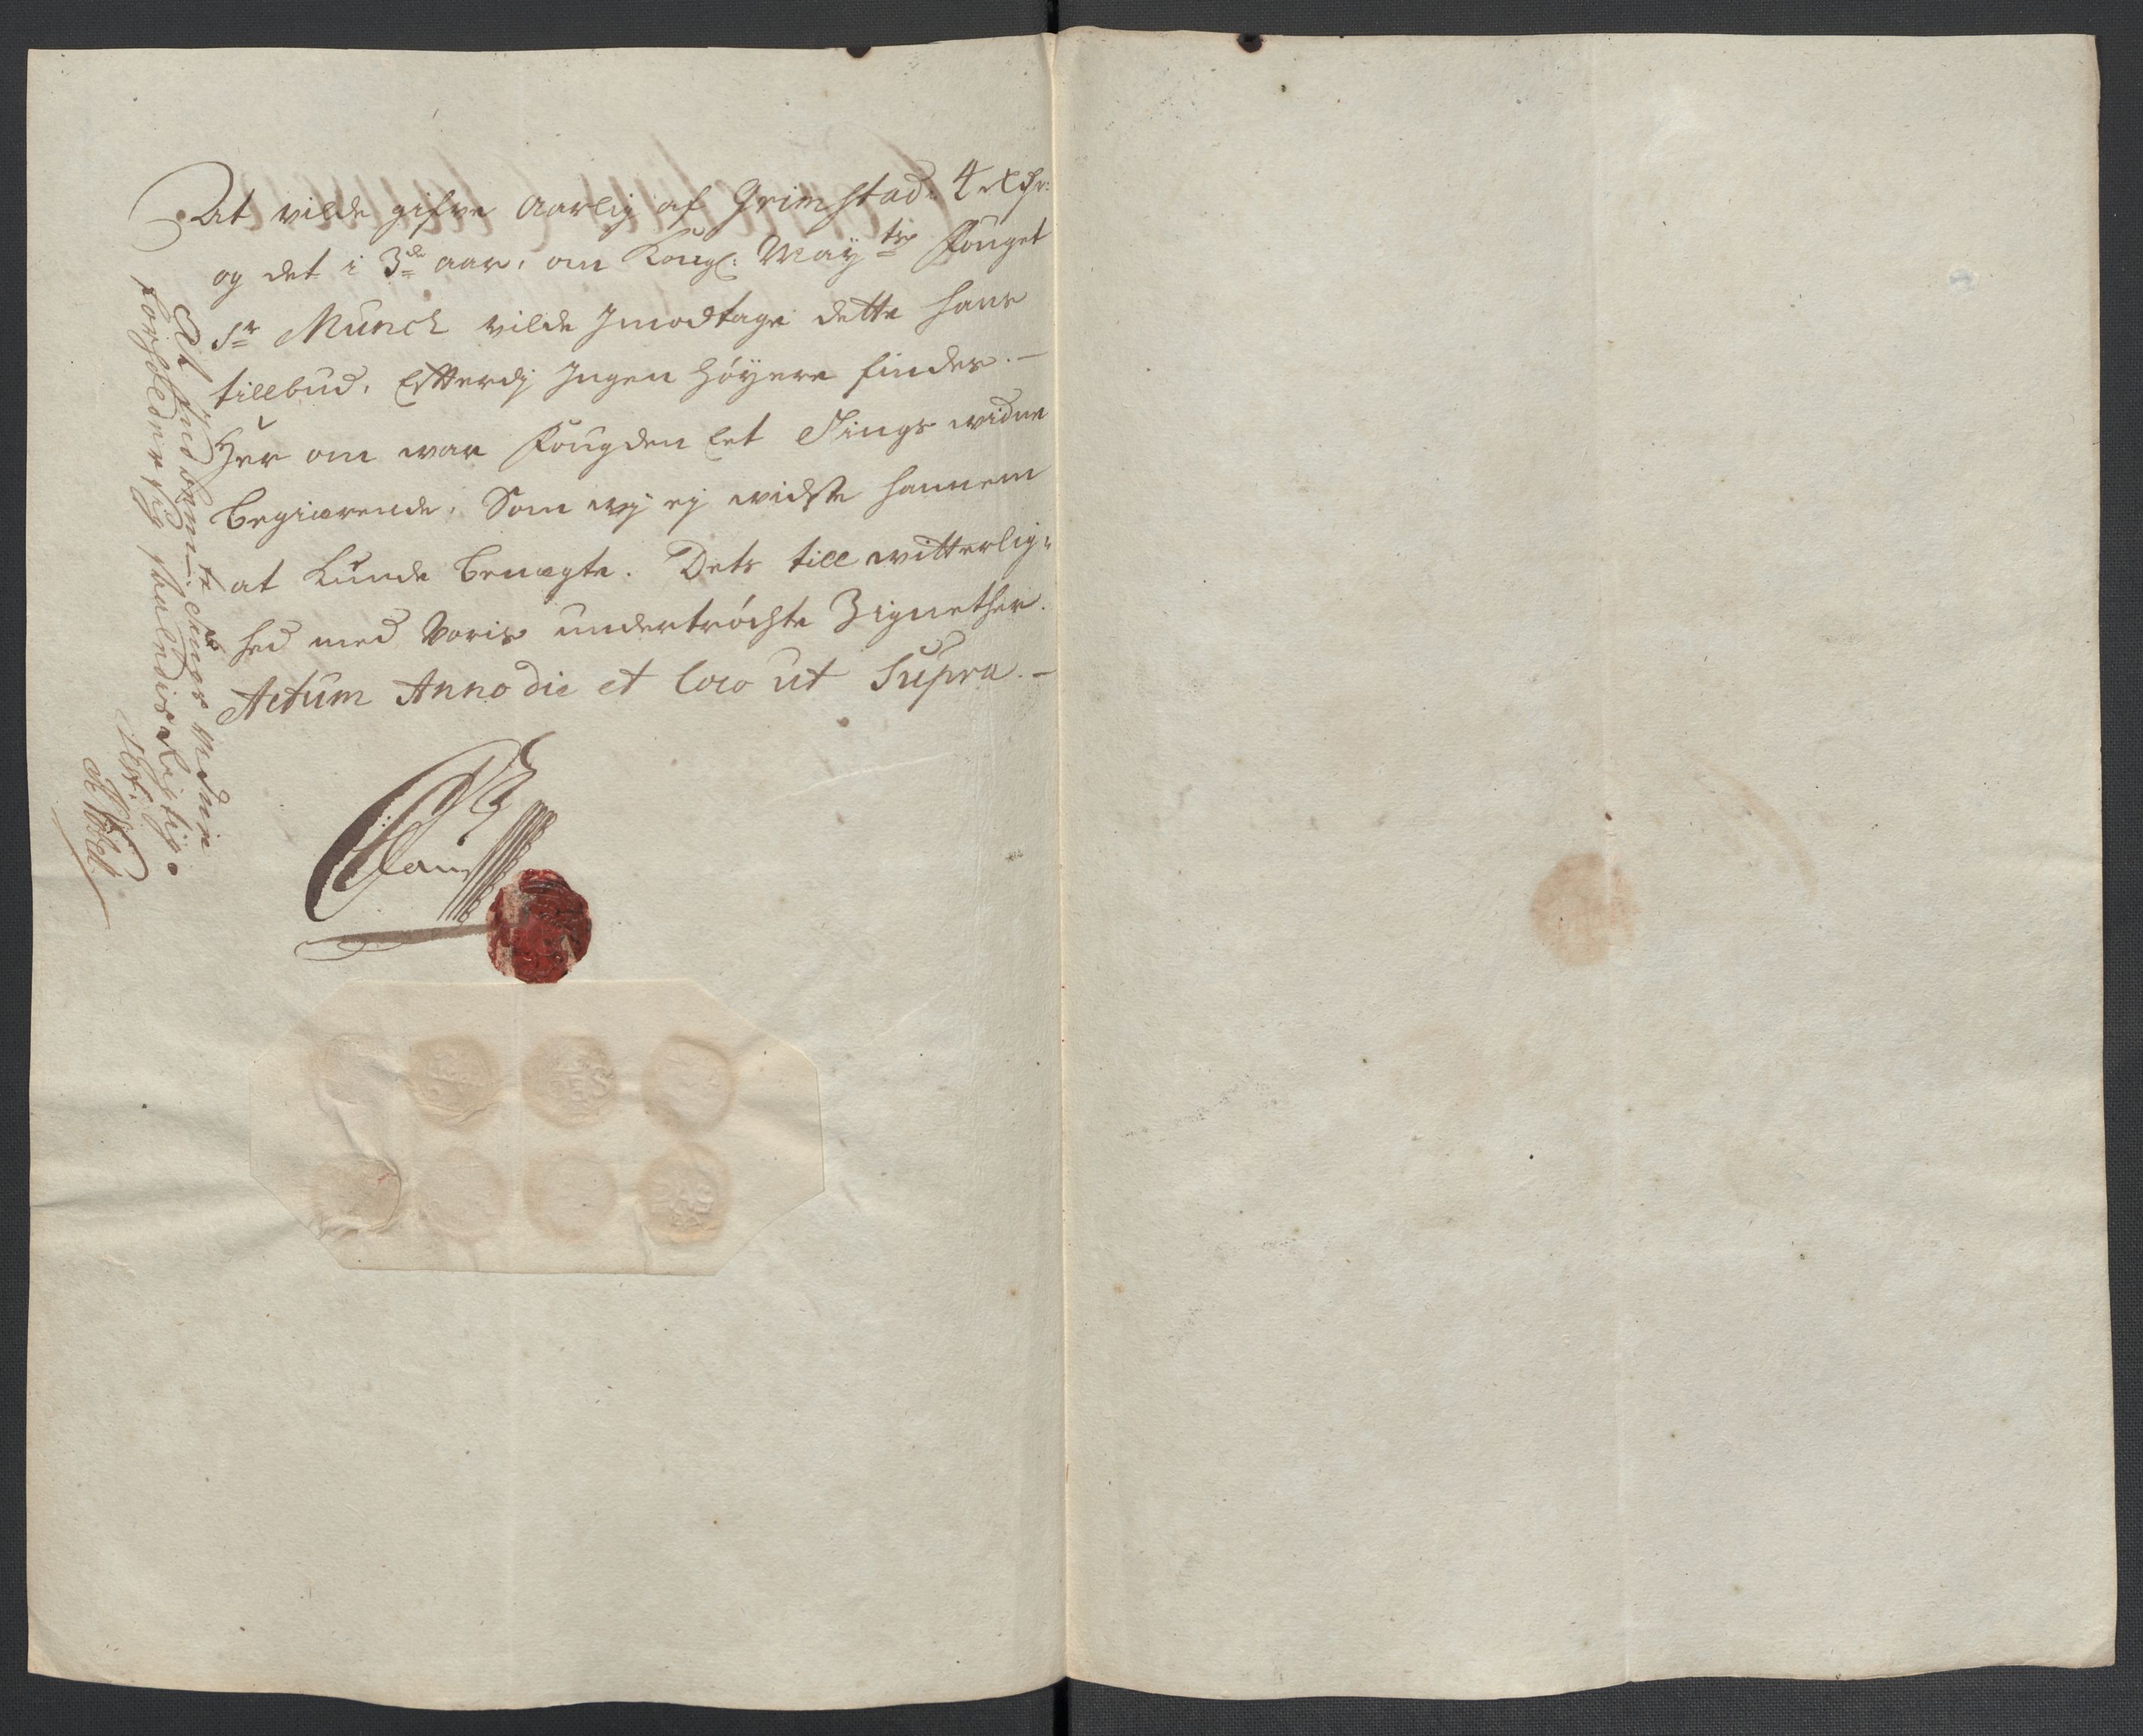 At vilde gifve aarlig af Grimstad 4 rdr:
og det i 3de aar, om Kongl: Mayts fouget
Sr Munch vilde Jmodtage dette hans
tillbud, Efterdj Jngen høyere findes.-
Her om war fougden Et Tings widne
begiærende, Som wj ej widste hannem
at kunde benegte. Dets till witterlig=
hed med voris undertrøchte Zignether.
Actum Anno die et loco ut Supra.-
forholder sig saaledis Rigtig.
test: